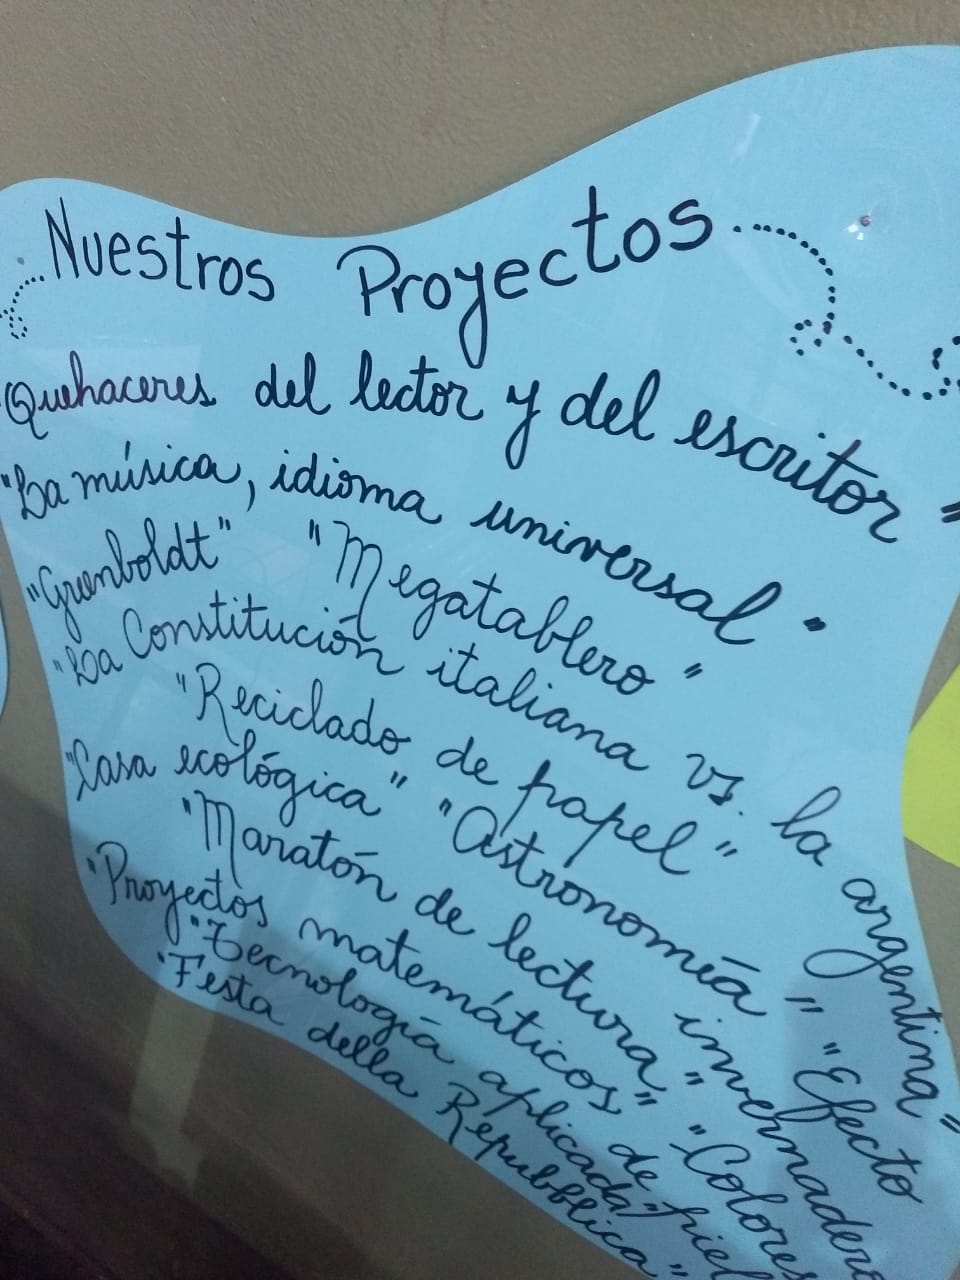 Nuestros Proyectos
Quehaceres del lector y del escritor"
"La música, idioma universal"
"Grünboldt" "Megatablero"
"La Constitución italiana vs. la argentina"
"Reciclado de papel"
"Casa ecológica" "Astronomía" "Efecto invernadero
"Maratón de lectura" "Colores de piel
"Proyectos matemáticos"
"Tecnología aplicada"
"Festa della Repubblica"